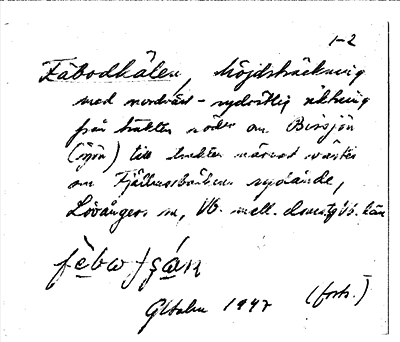 1-2
Fäbodkälen, höjdsträckning
med nordväst - sydostlig riktning
från trakten söder om Bissjön
(sjön) till trakten närmast väster
om Fjälbosbäckens sydände,
Lövångers sn, Vb. mell. domsg Vb. län
fèbwɟṣán
G Holm 1947 (forts.)